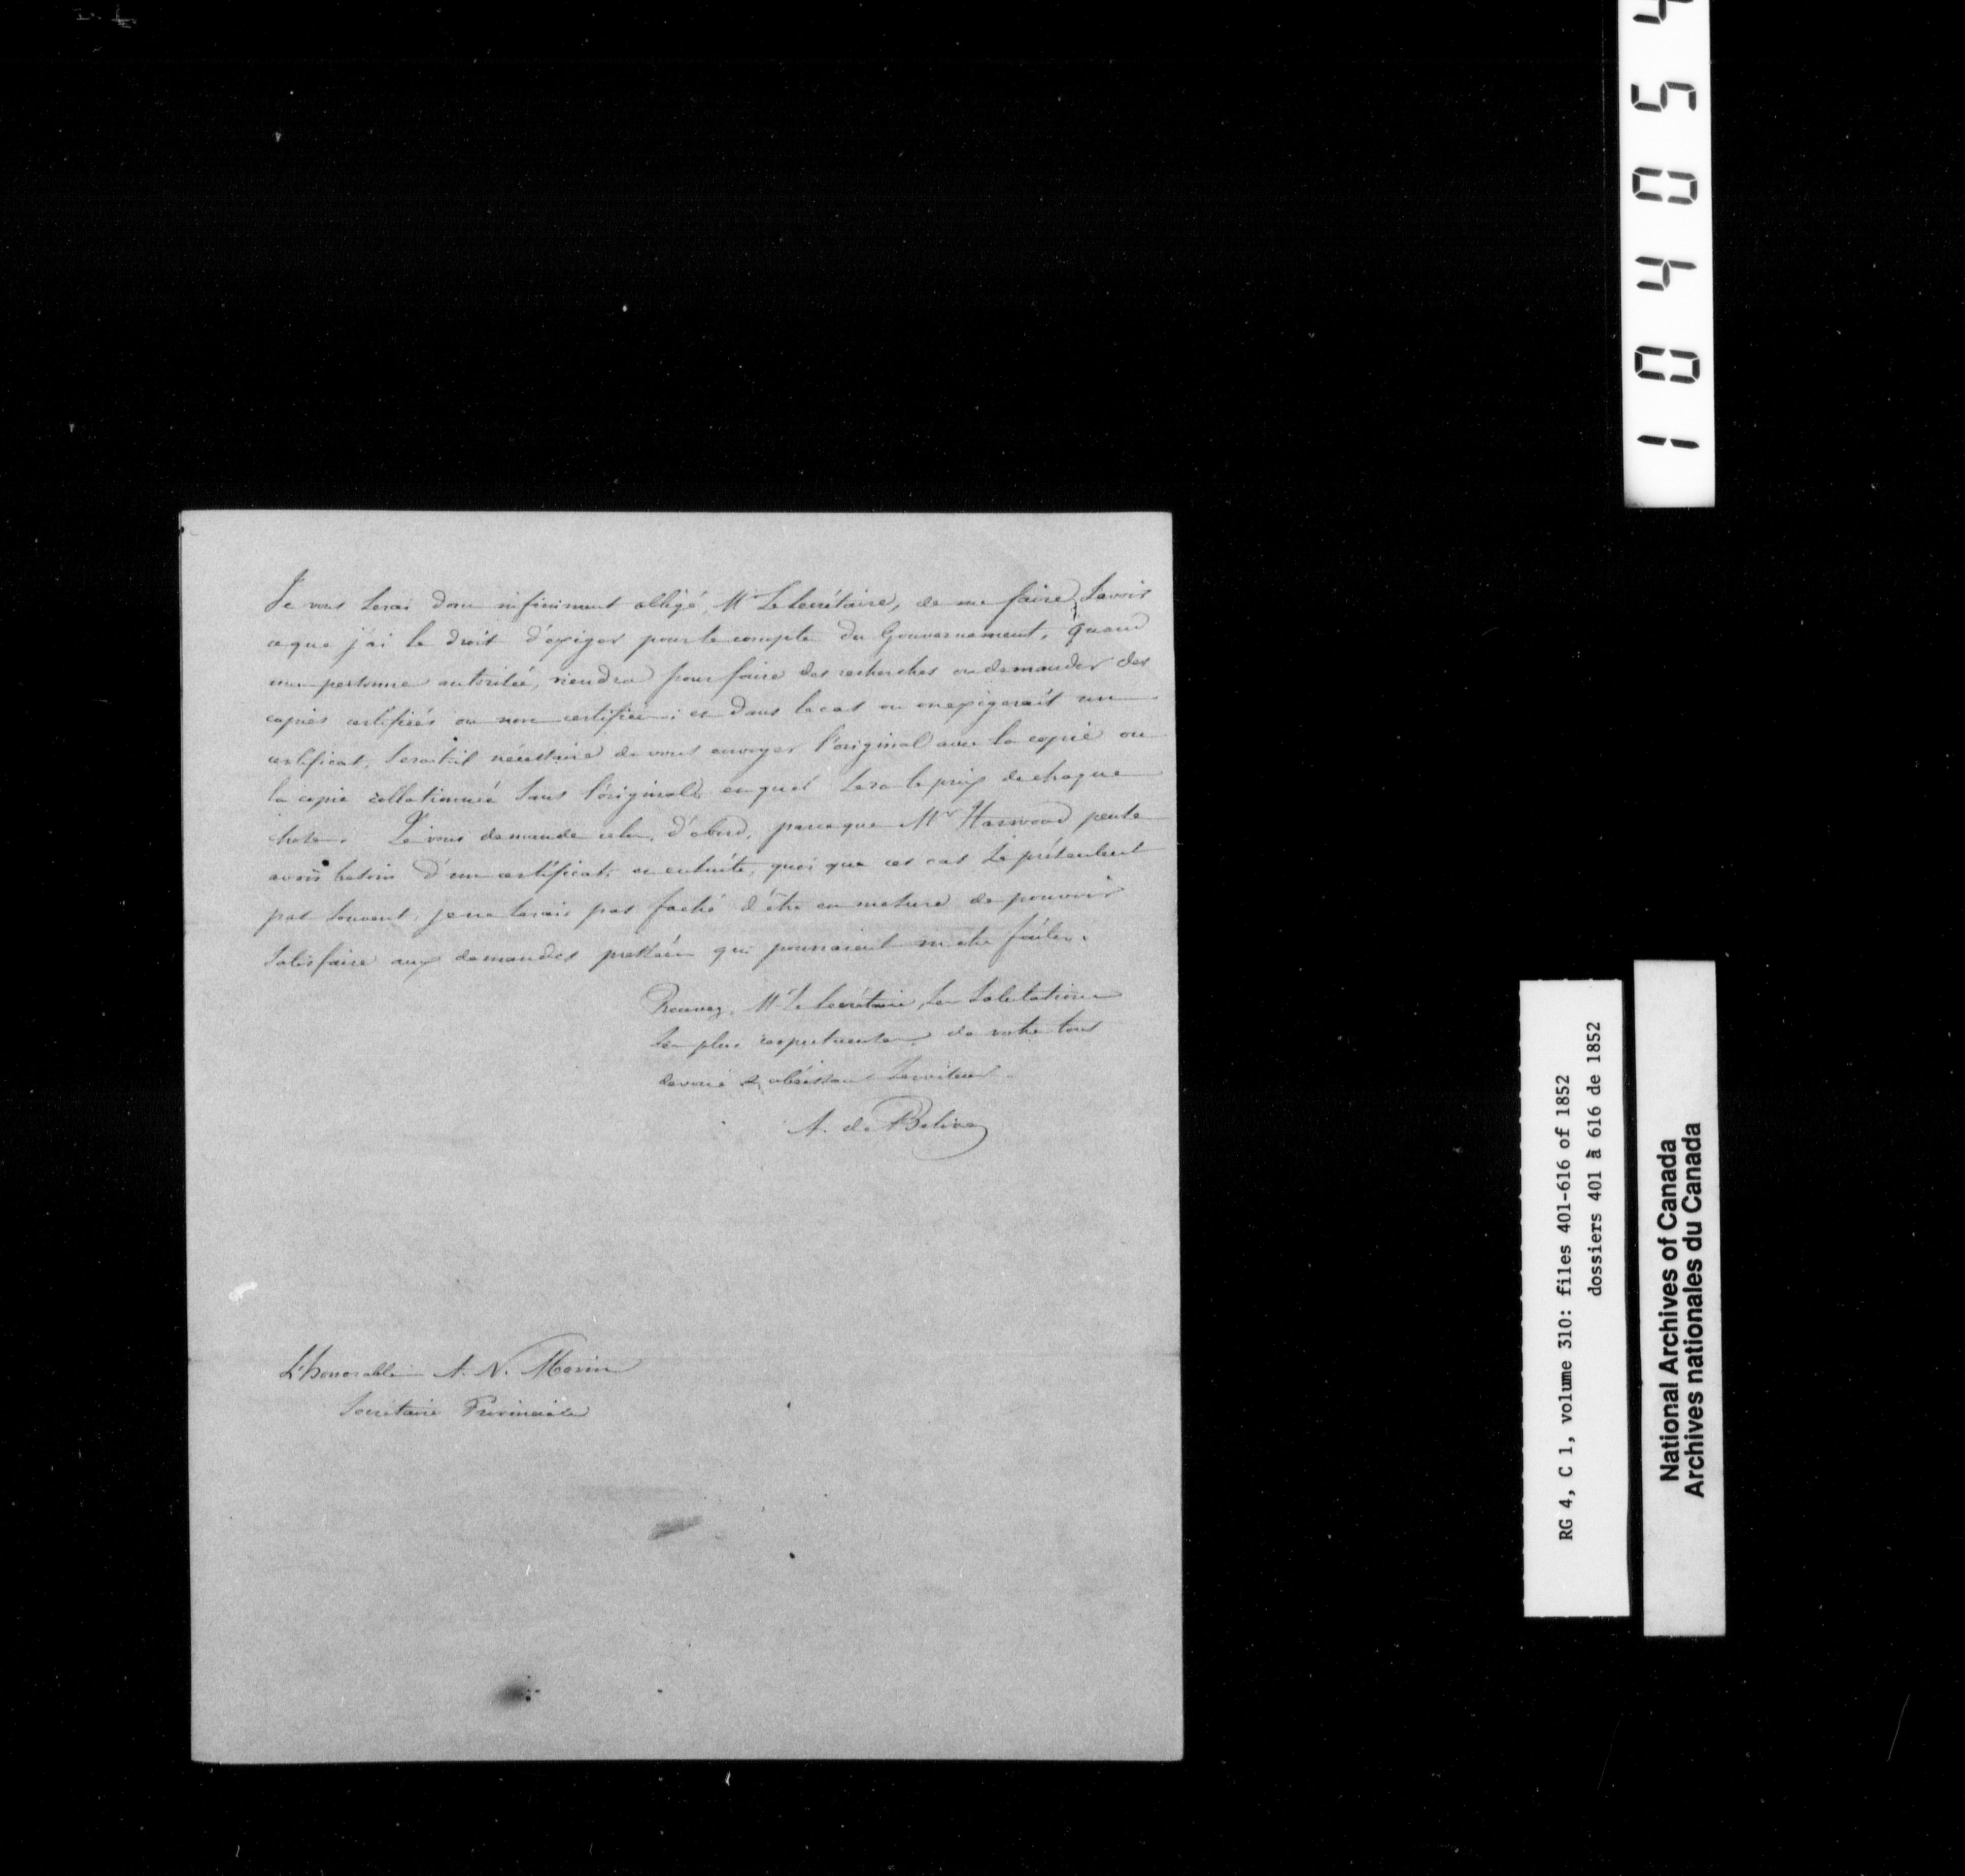 Je vous serai donc infiniment obligé, Mr Le Secrétaire, de me faire savoir
ce que j'ai le droit d'exiger pour le compte du Gouvernement, quand
une personne autorisée, viendra pour faire des recherches ou demander des
copies certifiées ou non certifiées; et dans le cas ou on exigerait un
certificat, serait-il nécessaire de vous envoyer l'original avec la copie ou
la copie collationnée sans l'original, en quel sera le prix de chaque
chose. Je vous demande cela, d'abord, parceque Mr Harwood peut
avoir besoin d'un certificat; et ensuite, quoi que ces cas se présentent
pas souvent, je ne serais pas faché d'être en mesure de pouvoir
satisfaire aux demandes pressées qui pourraient m'être faites.
Recevez, Mr Le Secrétaire, les salutations
les plus respectueuses de votre tout
devoué & obéissant serviteur.
A. de
L'honorable A. N. Morin
Secrétaire Provinciale
1 0 4 0 5 4
RG 4, C 1, volume 310: files 401-616 of 1852
dossiers 401 à 616 de 1852
National Archives of Canada
Archives nationales du Canada